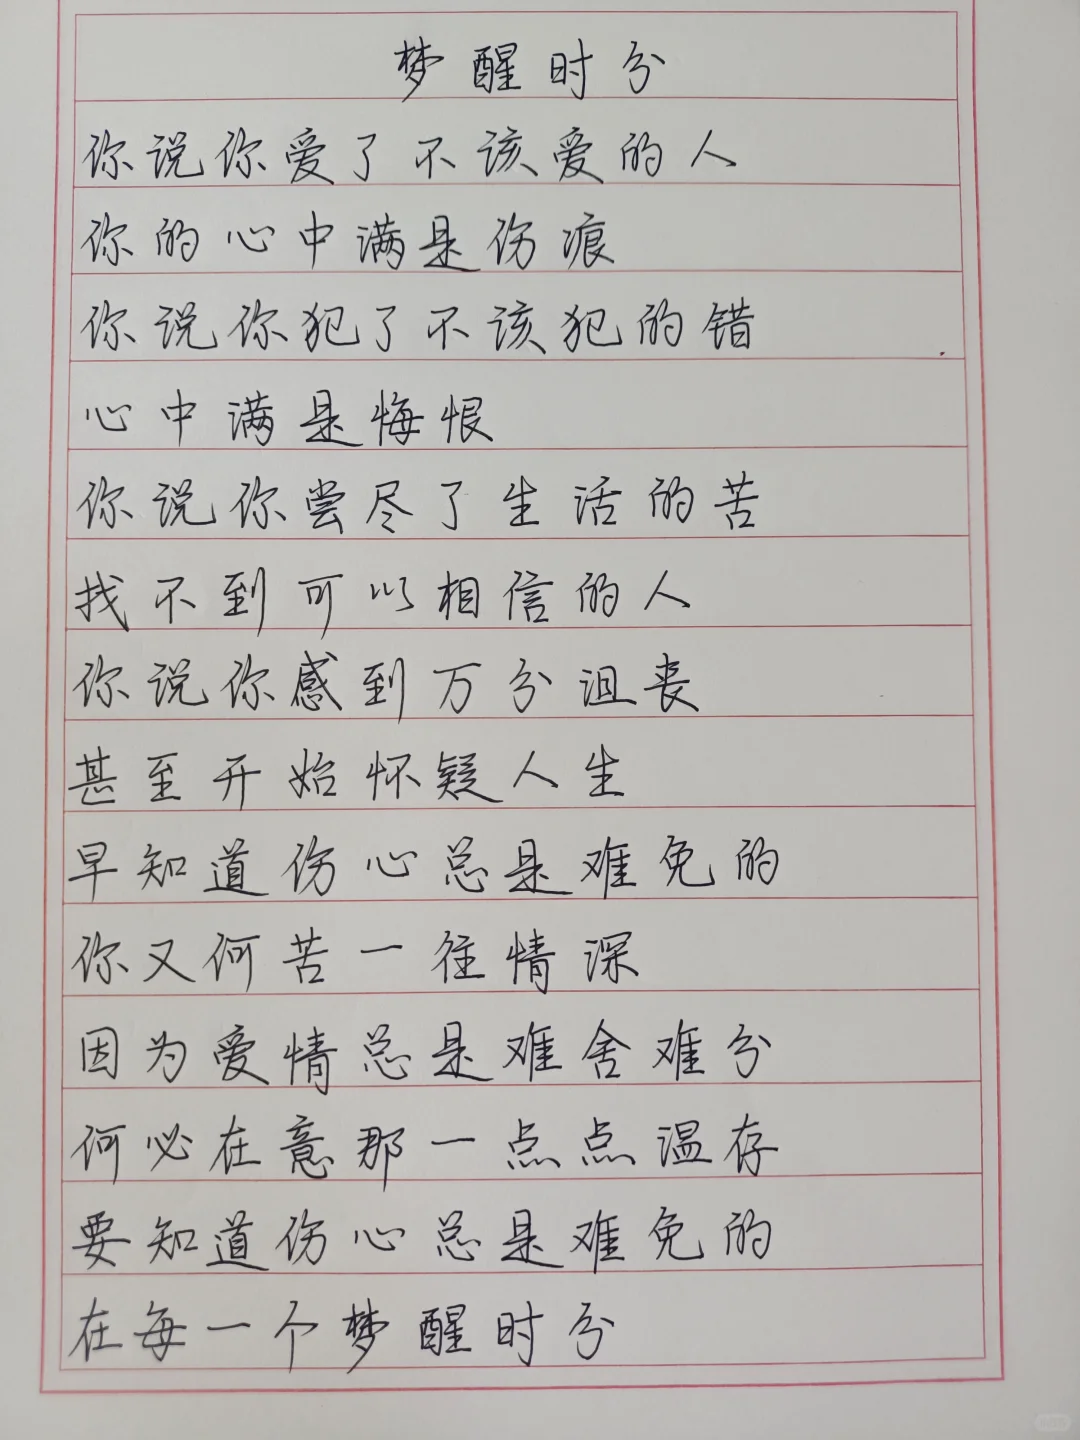 梦醒时分
你说你爱了不该爱的人
你的心中满是伤痕
你说你犯了不该犯的错
心中满是悔恨
你说你尝尽了生活的苦
找不到可以相信的人
你说你感到万分沮丧
甚至开始怀疑人生
早知道伤心总是难免的
你又何苦一往情深
因为爱情总是难舍难分
何必在意那一点点温存
要知道伤心总是难免的
在每一个梦醒时分